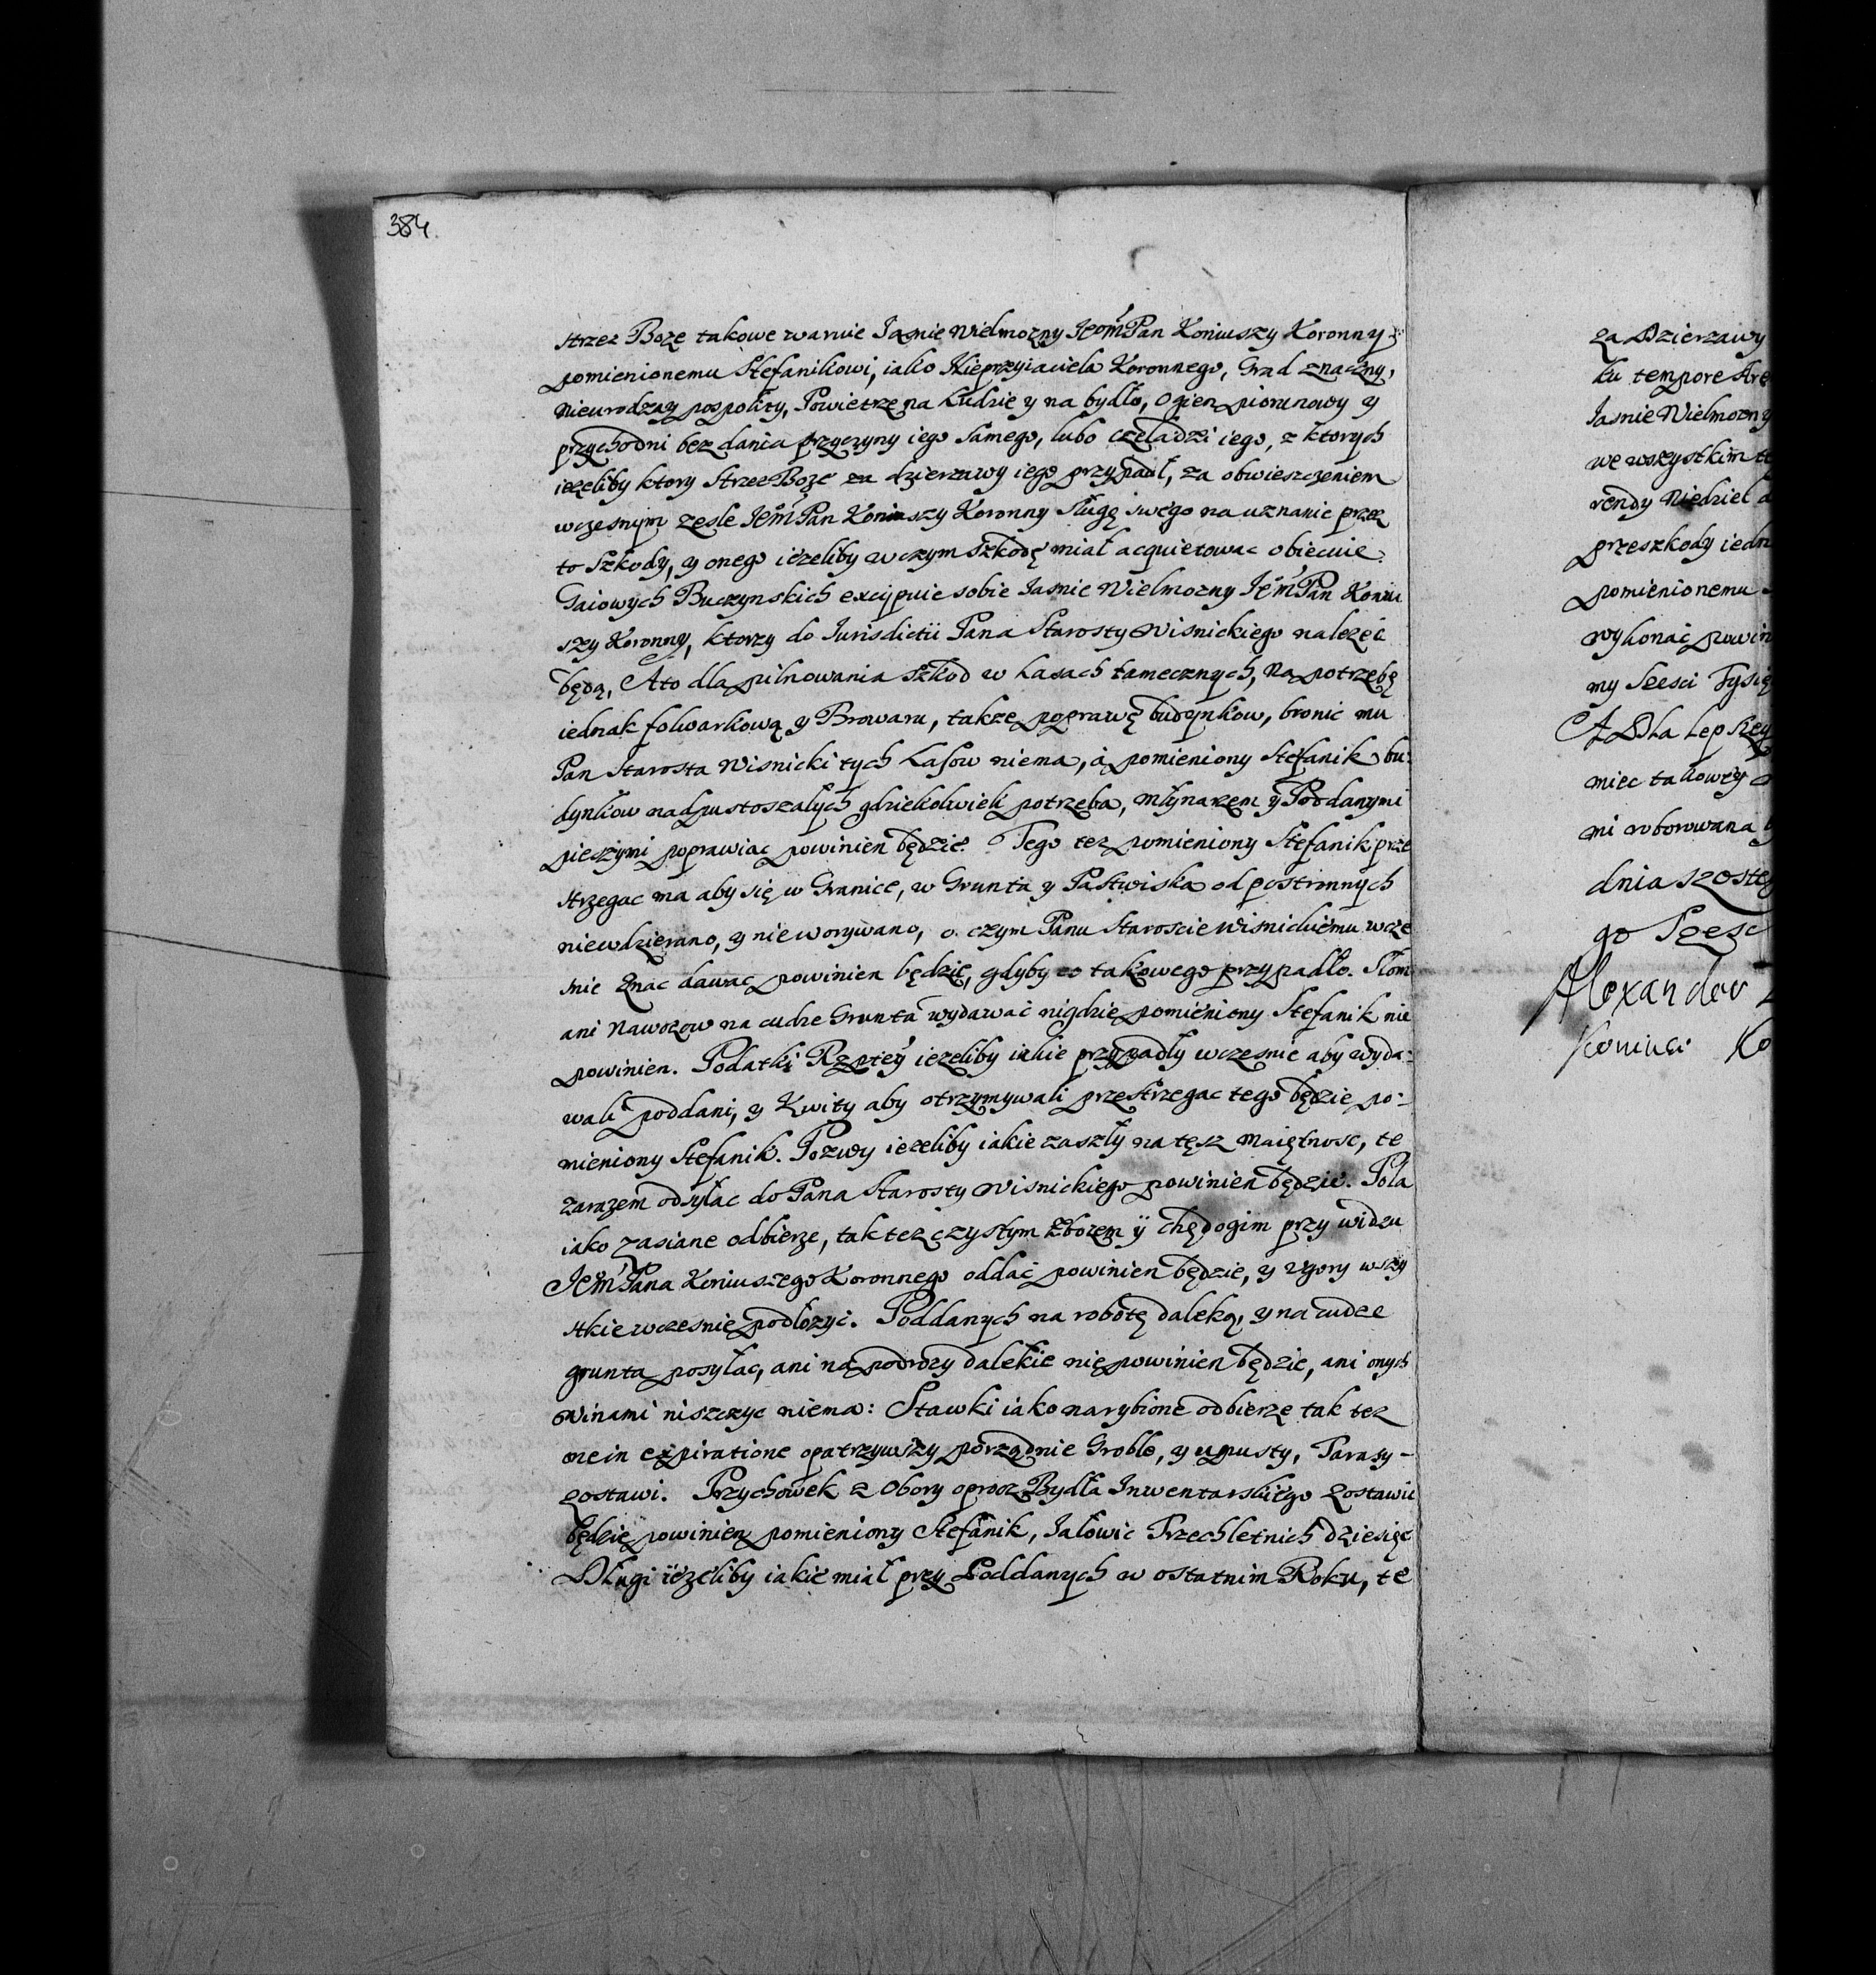 384.
strzez Boze takowe waruie Jasnie Wielmozny Jeo Pan Koniuszy Koronny
pomienionemu Stefanikowi, iako Nieprzyiaciela Koronnego, Grad znaczny,
nieurodzay pospolity, Powietrze na Ludzie y na bydło, Ogien piorunowy y
przychodni bez dania przyczyny iego samego, lubo czeladzi iego, z ktorych
iezeliby ktory strzez Boze za dzierzawy iego przypadł, za obwieszczeniem
wczesnym zesle Jem Pan Koniuszy Koronny sługę swego na uznanie przez
to szkody, y onego iezeliby w czym szkodę miał acquietowac obiecuie.
Gaiowych Buczynskich excypuie sobie Jasnie Wielmozny Jem Pan Koniu
szy Koronny, ktorzy do Jurisdictii Pana Starosty Wisnickiego nalezec
będą, A to dla pilnowania szkod w Lasach tamecznych, Na potrzebę
iednak folwarkową y Browaru, takze poprawę budynkow, bronic mu
Pan Starosta Wisnicki tych Lasow niema, a pomieniony Stefanik bu:
dynkow nadpustoszałych gdziekolwiek potrzeba, młynarzem y Poddanymi
pieszymi poprawiac powinien będzie. Tego tez pomieniony Stefanik prze
strzegac ma aby się w Granice, w Grunta y Pastwiska od postronnych
niewdzierano, y nieworywano, o czym Panu Staroscie Wisnickiemu wcze
snie znac dawac powinien będzie, gdyby co takowego przypadło. Słom
ani Nawozow na cudze Grunta wydawać nigdzie pomieniony Stefanik nie
powinien. Podatki Rzptey iezeliby iakie przypadły wczesnie aby wyda:
wali poddani, y Kwity aby otrzymywali przestrzegac tego będzie po:
mieniony Stefanik. Pozwy iezeliby iakie zaszły na tęsz maiętnosc, te
zarazem odsyłac do Pana Starosty Wisnickiego powinien będzie. Pola
iako zasiane odbierze, tak tez czystym zbozem ÿ chędogim przy widzu
Jem Pana Koniuszego Koronnego oddać powinien będzie, y ugory wszy
stkie wczesnie podłozyć. Poddanych na robotę daleką, y na cudze
grunta posyłac, ani na podrozy dalekie nie powinien będzie, ani onych
winami niszczyc niema: Stawki iako narybione odbierze tak tez
one in expiratione opatrzywszy porządnie Groble, y upusty, Tarasy -
zostawi. Przychowek z Obory oprocz Bydła Inwentarskiego zostawic
będzie powinien pomieniony Stefanik, Jałowic Trzechletnich dziesięc
Długi iezeliby iakie miał przy Poddanych w ostatnim Roku, te
za Dzierzawy
ku tempore
Jasnie Wielmozny
we wszystkim
rendy Niedziel
przeszkody iedn
pomienionemu
wykonać powin
my Szesci Tysię
A Dla Lepszey
miec takowey
mi roborowana
dnia szosteg
go Szesc
Alexander
Koniuszi Ko